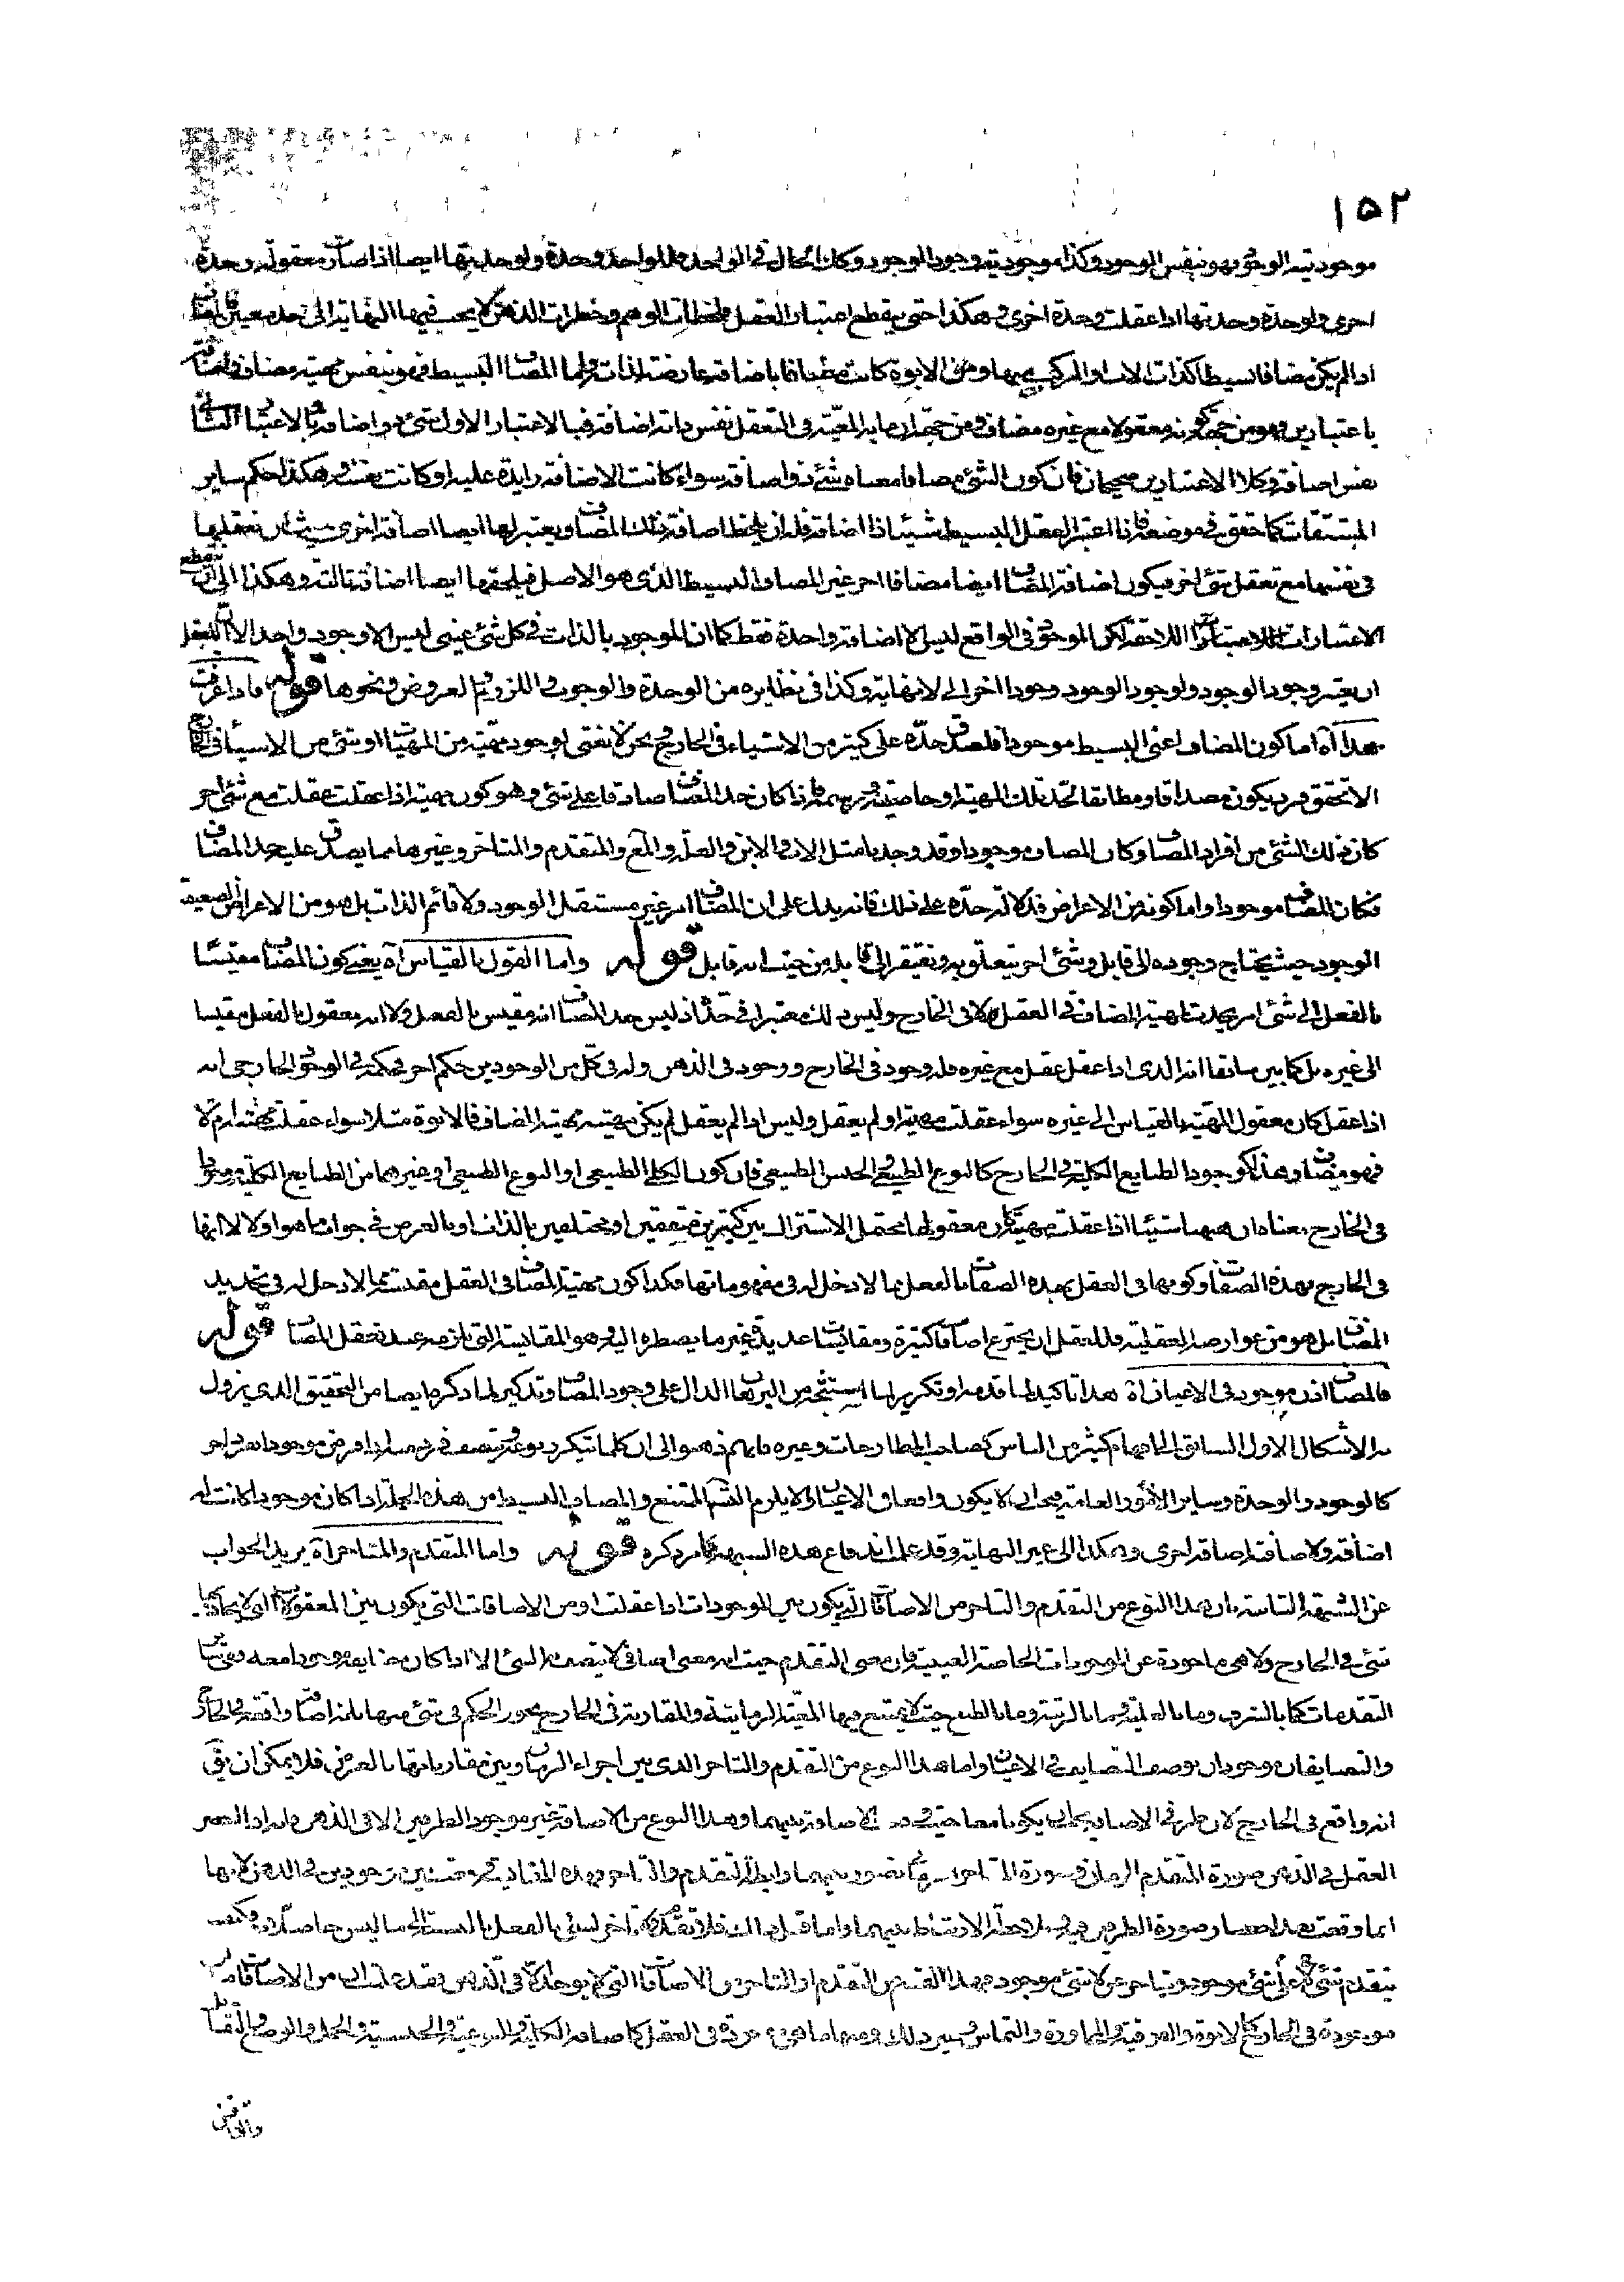 ١٥٢
موجوديته الوجود فهو بنفس الوجود وكذا موجودية وجود الوجود وكذا الحال في الواحد فللواحد وحدة ولوحدتها ايضا اذا صارت معقولة وحدة
اخرى ولوحدة وحدتها اذا عقلت وحدة اخرى وهكذا حتى ينقطع اعتبار العقل فلحظات الوهم وخطرات الذهن لا يجب فيها النهاية الى حد معين
اذا لم يكن مضافا بسيطا كذات الاب او المركب منها ومن الابوة كانت مضافا باضافة عارضة لذات واما المضاف البسيط فهو بنفس مهيته مضاف
باعتبارين فهو من جهة كونه معقولا مع غيره مضاف ومن جهة ان ما به المعية في التعقل نفس ذاته اضافة فبالاعتبار الاول شئ ذو اضافة وبالاعتبار الثاني
نفس اضافة وكلا الاعتبارين صحيحان فان كون الشئ مضافا معناه شئ ذو اضافة سواء كانت الاضافة زايدة عليه او كانت نفسه وهكذا حكم ساير
المشتقات كما حقق في موضعه فاذا اعتبر العقل البسيط شيئا ذا اضافة فله ان يلحظ اضافة ذلك المضاف ويعتبر لها ايضا اضافة اخرى من حيث ان تعقلها
في نفسها مع تعقل شئ اخر فيكون اضافة المضاف ايضا مضافا اخر غير المضاف البسيط الذي هو الاصل فيلحقها ايضا اضافة ثالثة وهكذا الى ان ينقطع
الاعتبارات اللاحقة لكن الموجود في الواقع ليس الا اضافة واحدة فقط كما ان الموجود بالذات في كل شئ عيني ليس الا وجود واحد الا ان للعقل
ان يعتبر وجود الوجود ولوجود الوجود وجودا اخر الى لا نهاية وكذا في نظايره من الوحدة والوجوب واللزوم والعروض ونحوها قوله فاذا عرفت
هذا آه اما كون المضاف اعني البسيط موجودا فلصدق حده على كثير من الاشياء في الخارج نحن لا نعني بوجود مهية من المهيات او شئ من الاشياء في الخارج
الا تحقق فرد يكون مصداقا ومطابقا لحد تلك المهية او خاصيته ورسمه فاذا كان حد المضاف صادقا على شئ وهو كون مهية اذا عقلت عقلت مع شئ اخر
كان ذلك الشئ من افراد المضاف وكان المضاف موجودا وقد وجدنا مثل الاب والابن والعلة والمع والمتقدم والمتاخر وغيرها مما يصدق عليه حد المضاف
فكان المضاف موجودا واما كونه من الاعراض فدلالة حده على ذلك فانه يدل على ان المضاف امر غير مستقل الوجود ولا قائم الذات بل هو من الاعراض الضعيفة
الوجود حيث يحتاج وجوده الى قابل وشئ اخر يتعلق به ويفتقر الى قابله من حيث انه قابل قوله واما القول بالقياس آه يعني كون المضاف مقيسا
بالفعل الى شئ امر يحدث لمهية المضاف في العقل لا في الخارج وليس ذلك معتبرا في حده اذ ليس حد المضاف انه مقيس بالفعل ولا انه معقول بالفعل مقيسا
الى غيره بل كما بين سابقا انه الذي اذا عقل عقل مع غيره فله وجود في الخارج ووجود في الذهن وله في كل من الوجودين حكم اخر فحكمه في الوجود الخارجي انه
اذا عقل كان معقول المهية بالقياس الى غيره سواء عقلت مهية او لم يعقل وليس اذا لم يعقل لم يكن مهيته مهية المضاف فالابوة مثلا سواء عقلت مهيته ام لا
فهو مضاف وهذا كوجود الطبايع الكلية في الخارج كالنوع الطبيعي الجنس الطبيعي فان كون الكلي الطبيعي او النوع الطبيعي او غيرهما من الطبايع الكلية موجودا
في الخارج معناه ان هيهنا شيئا اذا عقلت مهيته كان معقولها محتمل الاشتراك بين كثيرين متفقين او مختلفين بالذات او بالعرض في جواب ما هو او لا لا انها
في الخارج بهذه الصفات وكونها في العقل بهذه الصفات بالفعل مما لا دخل له في مفهوماتها فكذا كون مهية المضاف في العقل مقيسة مما لا دخل له في تحديد
المضاف بل هو من عوارضه العقلية وللعقل ان يخترع اضافات كثيرة ومقايسات عديدة غير ما يضطره اليه وهو المقايسة التي تلزمه عند تعقل المضاف قوله
فالمضاف اذن موجود في الاعيان آه هذا تاكيد لما قدمه او تكرير لما استنتجه من البرهان الدال على وجود المضاف وتذكير لما ذكره ايضا من التحقيق الذي يزول
به الاشكال الاول السابق كثير من الناس كصاحب المطارحات وغيره فانهم ذهبوا الى ان كلما يتكرر نوعه
كالوجود والوحدة وساير الامور العامة فيجب ان لا يكون واقعا في الاعيان لئلا يلزم التسلسل الممتنع والمضاف البسيط من هذه الجملة اذا كان موجودا كانت له
اضافة ولاضافته اضافة اخرى وهكذا الى غير النهاية وقد علم اندفاع هذه الشبهة بما مر ذكره قوله واما المتقدم والمتاخر آه يريد الجواب
عن الشبهة الثانية بان هذا النوع من التقدم والتاخر من الاضافات التي يكون بين الموجودات اذا عقلت او من الاضافات التي يكون بين المعقولات التي
شئ في الخارج ولا هي ماخوذة عن الموجودات الخاصة العينية فان معنى التقدم حيث انه معنى اضافي لا يتصف به الشئ الا اذا كان مضايفه موجودا معه
التقدمات كما بالشرف وما بالعلية وما بالرتبة وما بالطبع حيث لا يمتنع فيها المعية الزمانية والمقارنة في الخارج يجوز الحكم في شئ منها بانها اضافات واقعة في الخارج
والمتضايفان موجودان بوصف التضايف في الاعيان واما هذا النوع من التقدم والتاخر الذي بين اجزاء الزمان وبين مقارناتها بالعرض فلا يمكن ان يق
انه واقع في الخارج لان طرفي الاضافة يجب ان يكونا معا الاضافة بينهما وهذا النوع من الاضافة غير موجود الطرفين الا في الذهن فانه اذا احضر
العقل في الذهن صورة المتقدم الزماني وصورة المتاخر بينهما رابطة التقدم والتاخر وهذه
انما وقعت بعد احضار صورة الطرفين الارتباط بينهما واما قبل ذلك فلا تقدم ولا تاخر لشئ بالفعل بالنسبة الى ما ليس حاصلا
يتقدم شئ على لا شئ موجود ويتاخر عن لا شئ موجود فهذا القسم من التقدم او التاخر من الاضافات التي لا يوجد الا في الذهن فقد علمت ان من الاضافات ما هي
موجودة في الخارج كالابوة والفوقية والمجاورة والتماس وغير ذلك ومنها ما هي موجودة في العقل كاضافة الكلية والنوعية والجنسية والحمل والوضع